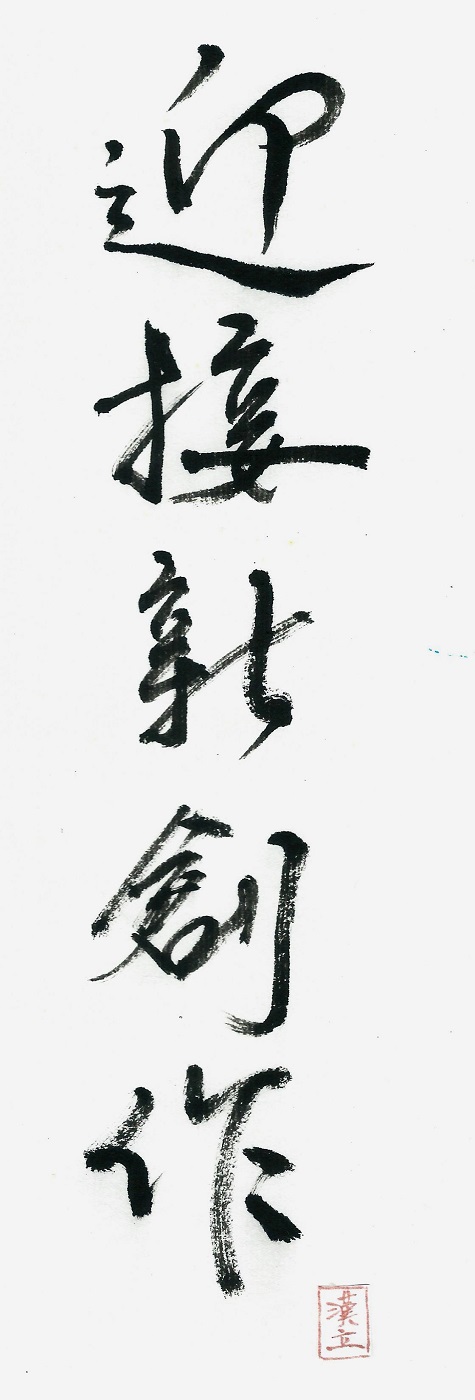 迎接新創作
漢立